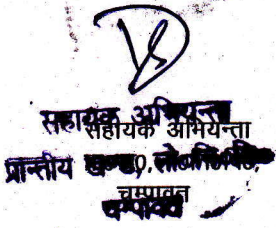 सहायक अभियन्ता
सहायक अभियन्ता
प्रान्तीय खण्ड, लो0नि0वि0,
चम्पावत
चम्पावत